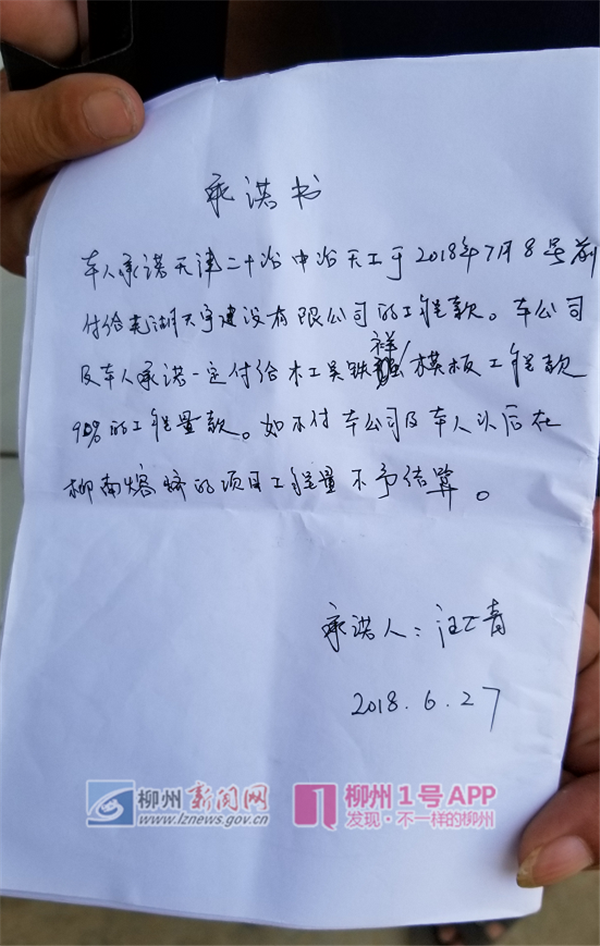 承诺书
本人承诺天津二十冶中冶天工于2018年7月8号前
付给芜湖天宇建设有限公司的工程款。本公司
及本人承诺一定付给木工吴铁祥模板工程款
90%的工程量款。如不付本公司及本人以后在
柳南 的项目工程量不予结算。
承诺人:汪 青
2018.6.27
柳州新闻网
www.lznews.gov.cn
柳州1号APP
发现·不一样的柳州